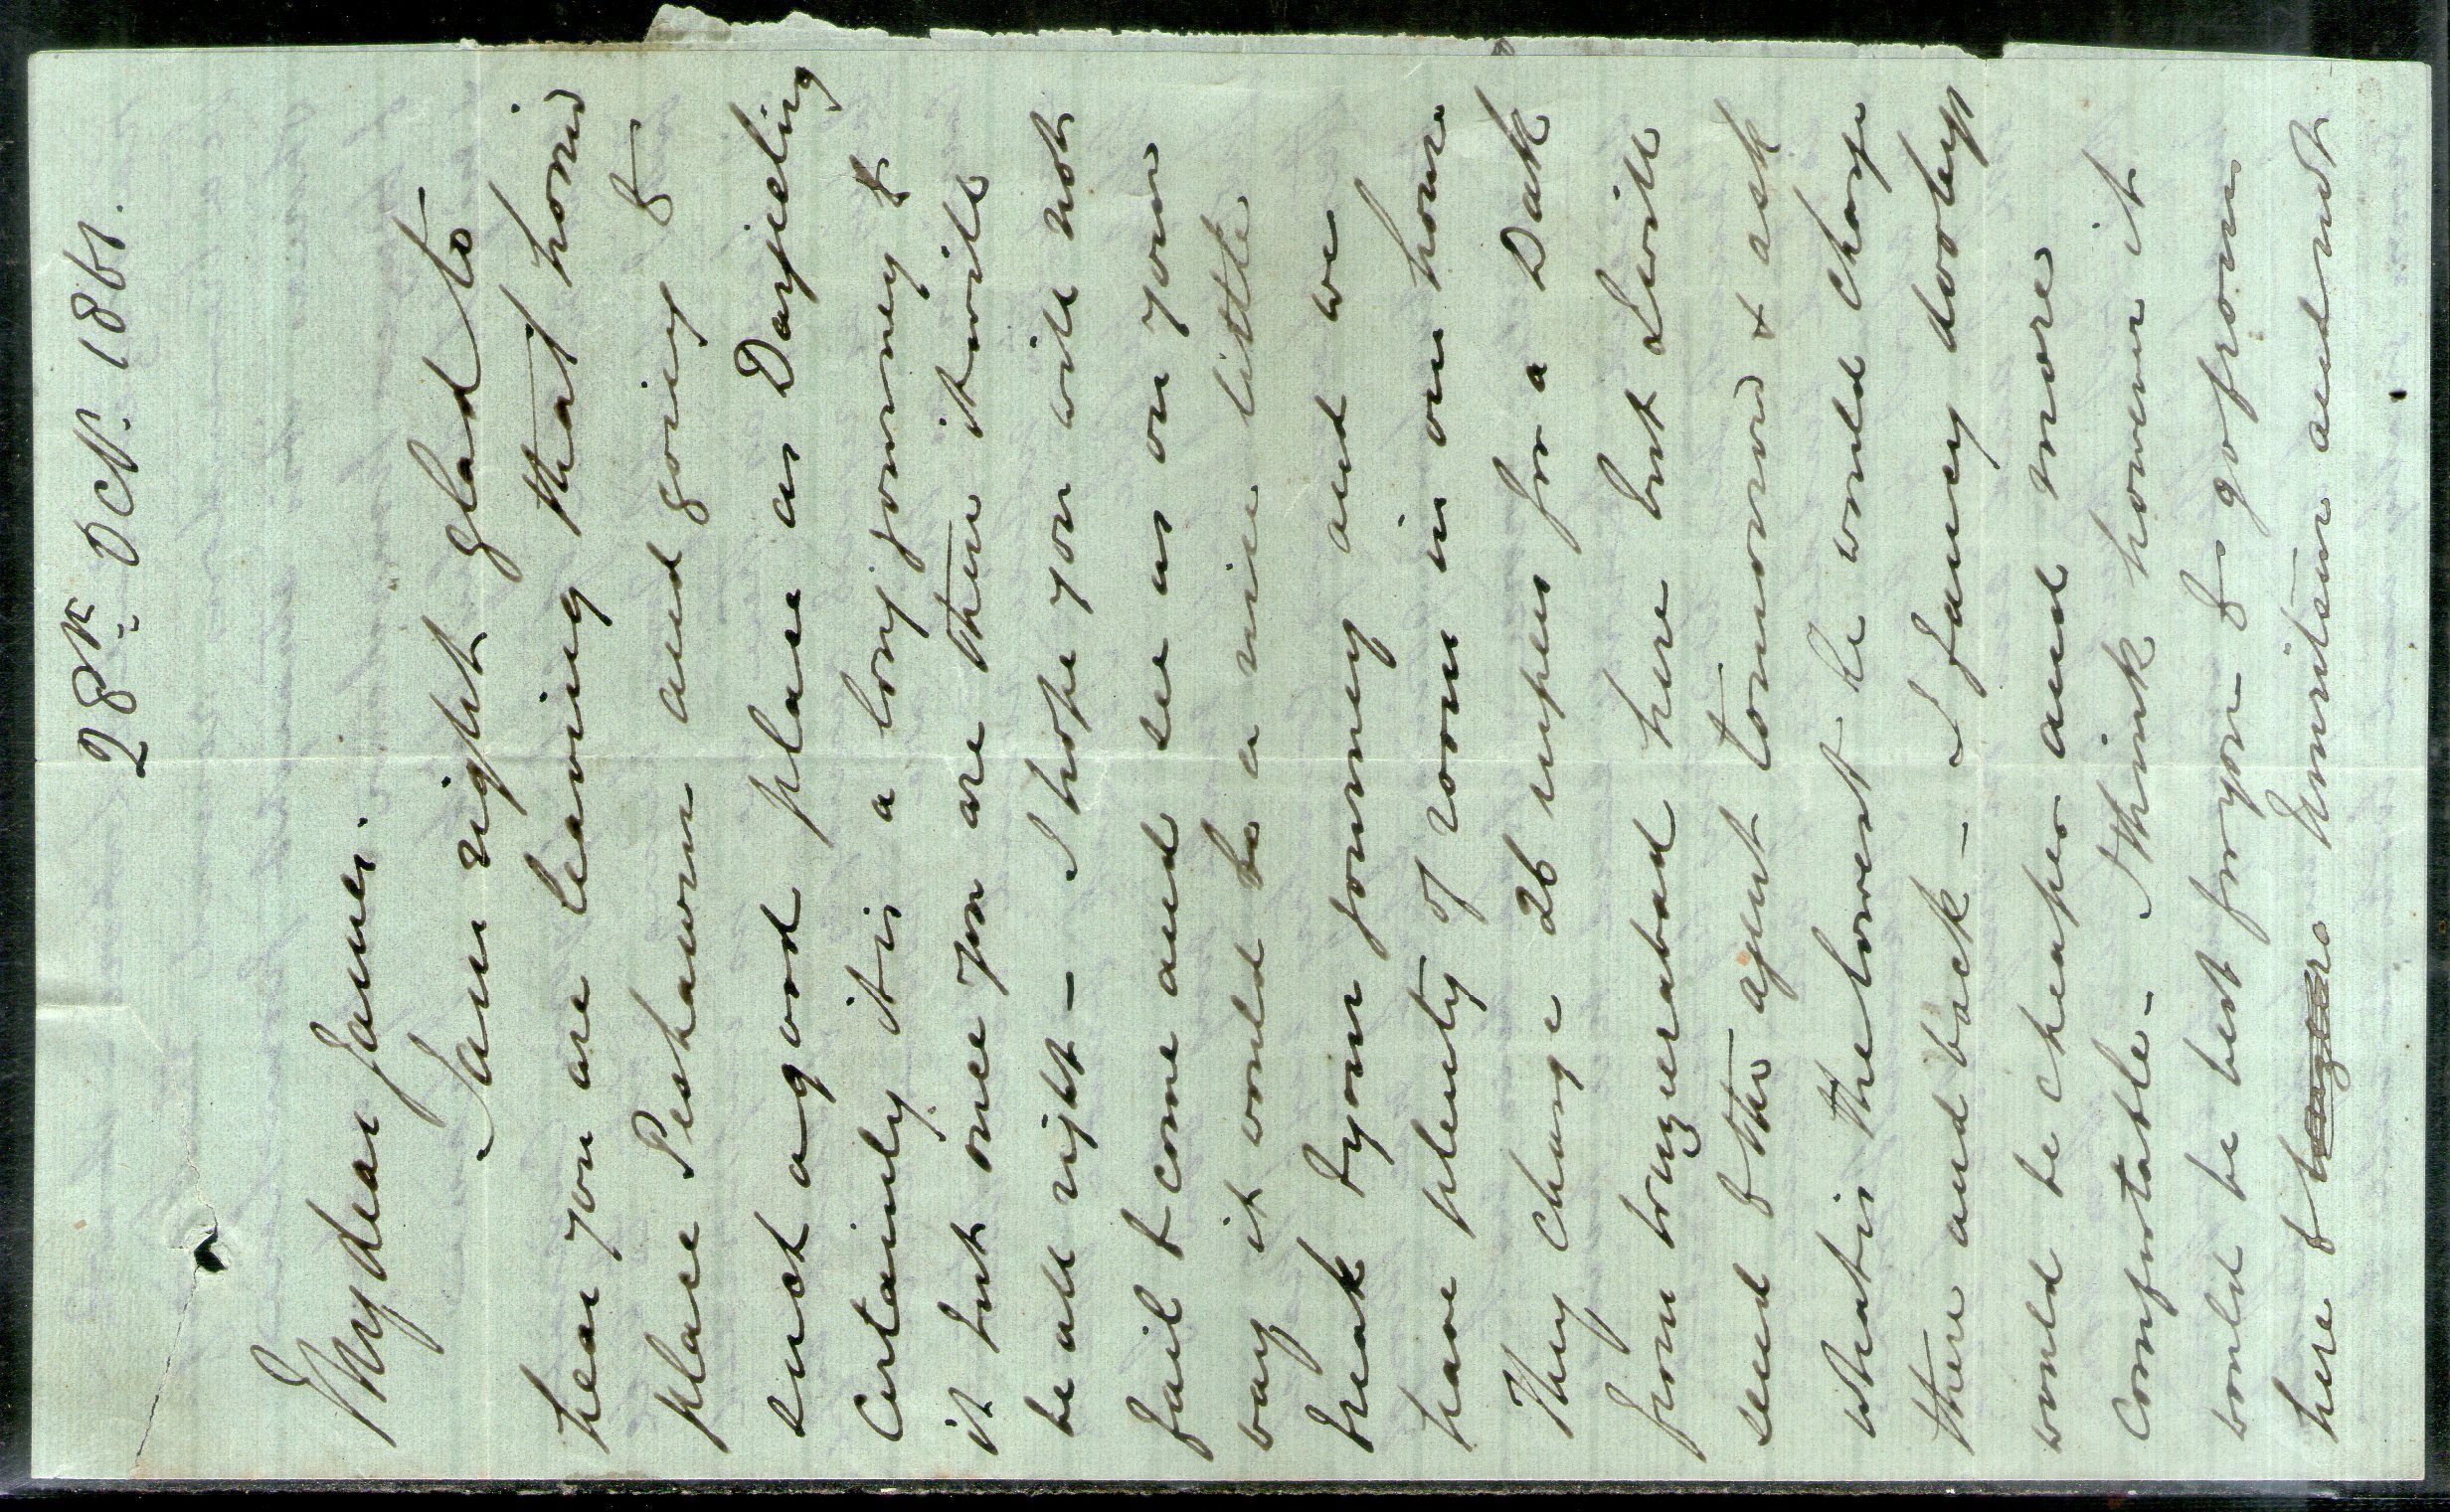 28th Oct. 1861.
My dear James.
I am right glad to
hear you are leaving that horrid
place Peshawur and going to
such a good place as Darjeeling
Certainly it is a long journey to
it but once you are there it will
be all right - I hope you will not
fail to come and see us on your
way it would be a nice little
break to your journey and we
have plenty of room in our house
They charge 26 rupees for a Dak
from here but I will
send to the agent tomorrow & ask
what is the lowest he would charge
there and back - I fancy doolies
would be cheaper and more
comfortable - I think however it
would be best for you to go from
here to and not